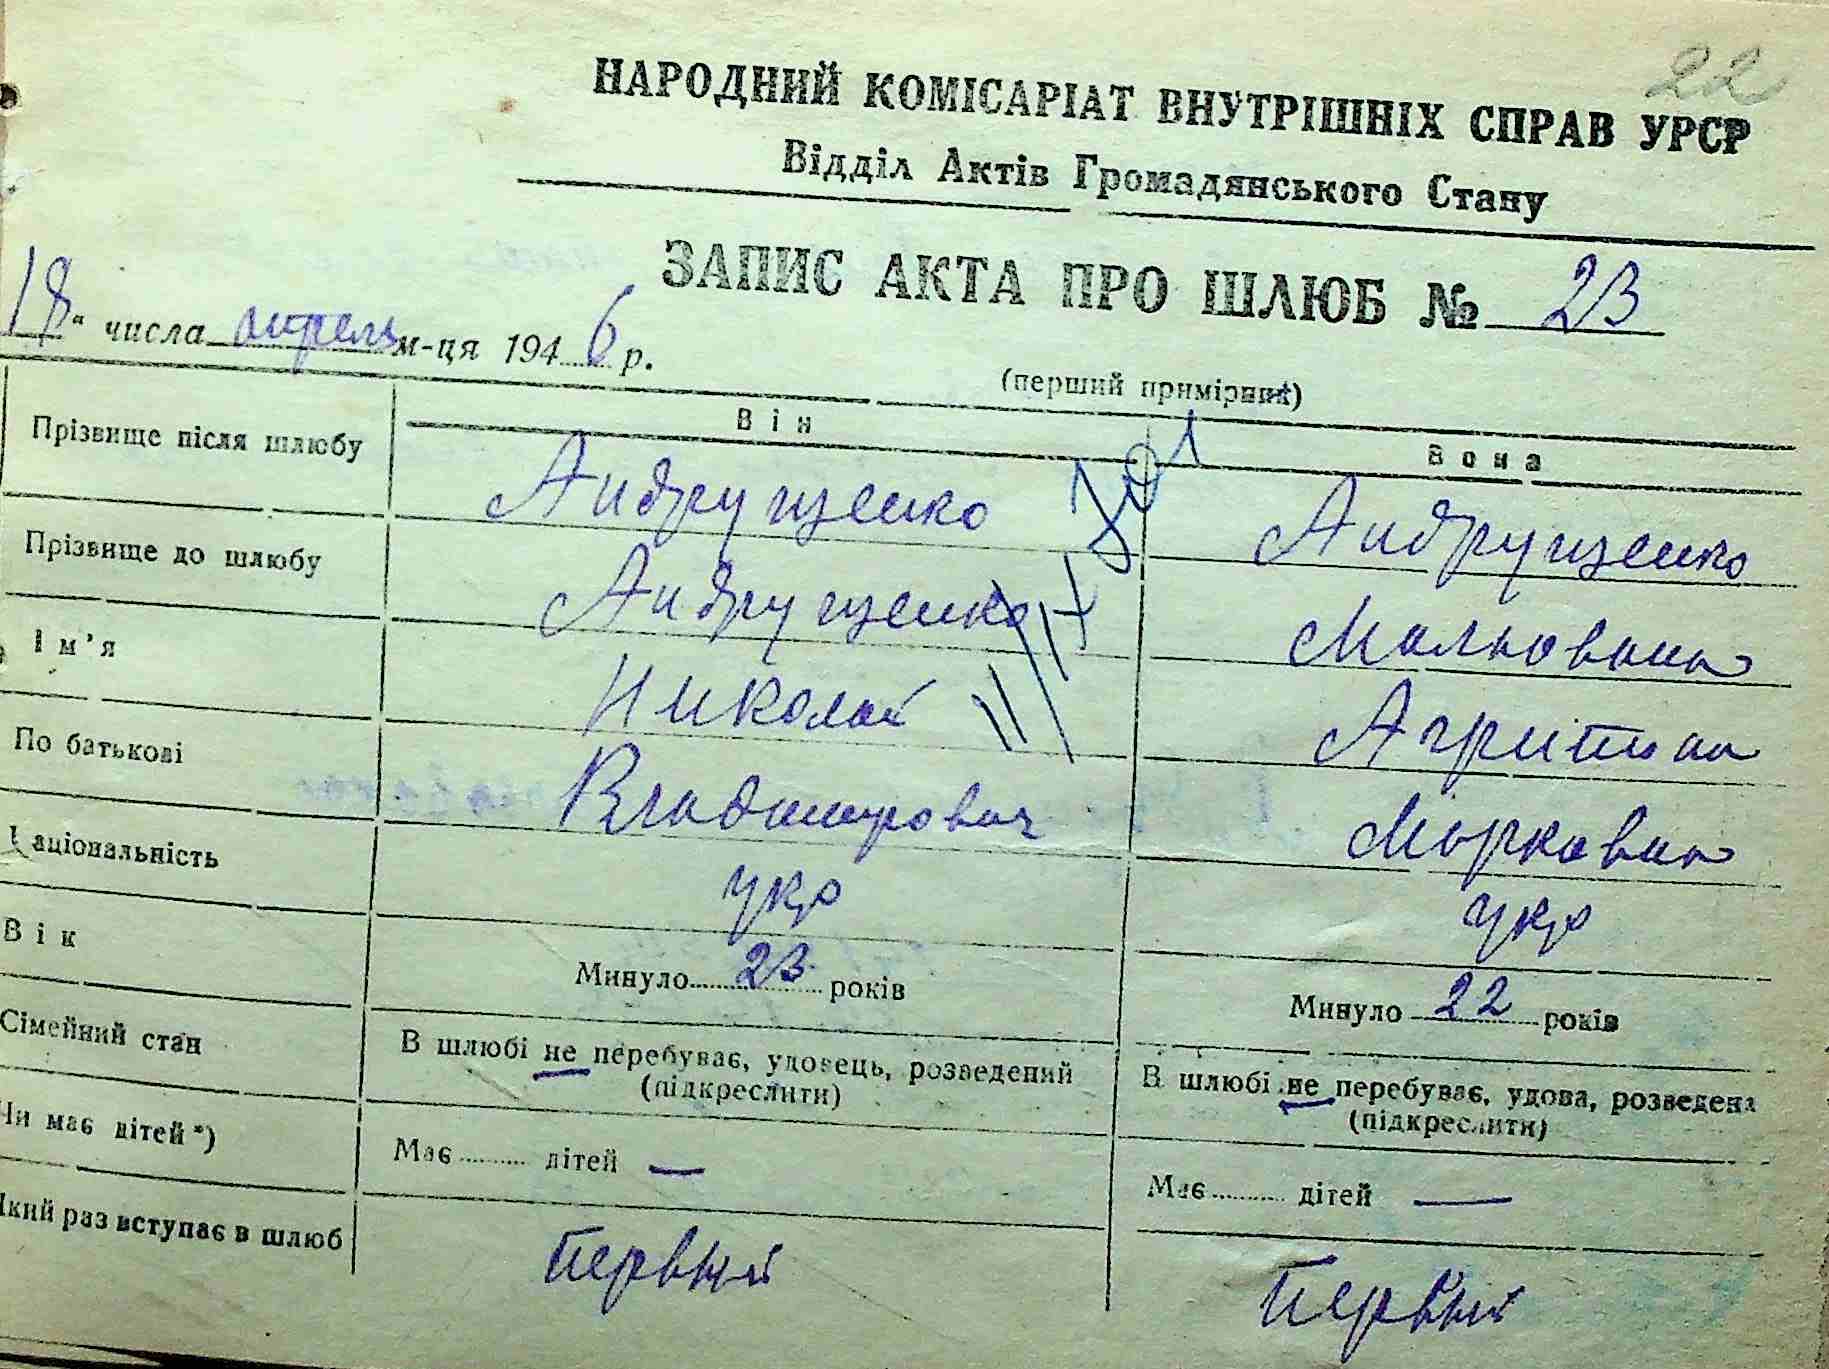 22
НАРОДНИЙ КОМІСАРІАТ ВНУТРІШНІХ СПРАВ УРСР
Відділ Актів Громадянського Стану
ЗАПИС АКТА ПРО ШЛЮБ № 23
18 " числа апреля м-ця 1946 р.
(перший примірник)
Він Вона
Прізвище після шлюбу Андрущенко Андрущенко
Прізвище до шлюбу Андрущенко
Ім'я Николай
По батькові Владимирович Марковна
Національність укр укр
Вік Минуло 23 років Минуло 22 років
Сімейний стан В шлюбі не перебуває, удовець, розведений В шлюбі не перебуває, удова, розведена
(підкреслити) (підкреслити)
Чи має дітей *) Має ... дітей — Має ... дітей —
Який раз вступає в шлюб первый первый